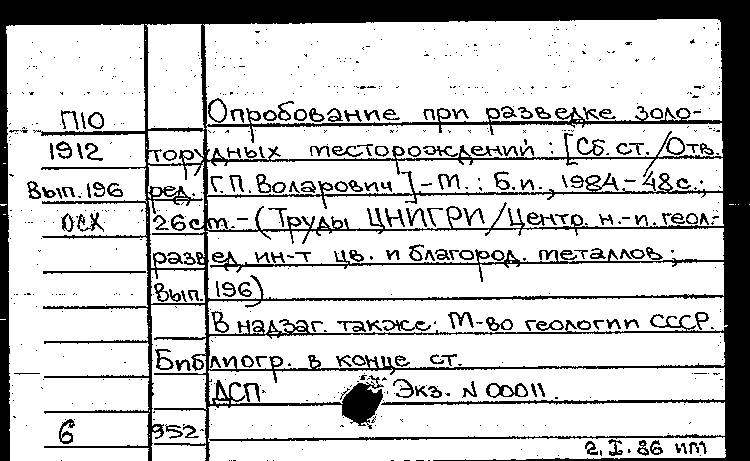 П10 Опробование при разведке золо-
1912 торудных месторождений : [Сб. ст. / Отв.
Вып. 196 ред. Г.П. Воларович ] - М. : Б.и., 1984. - 48с.;
ОСХ 26см. - (Труды ЦНИГРИ / Центр. н.-и. геол.-
развед. ин-т цв. и благород. металлов ;
Вып. 196).
В надзаг. также: М-во геологии СССР.
Библиогр. в конце ст.
ДСП Экз. N 00011.
6 952
2.I.86 пп